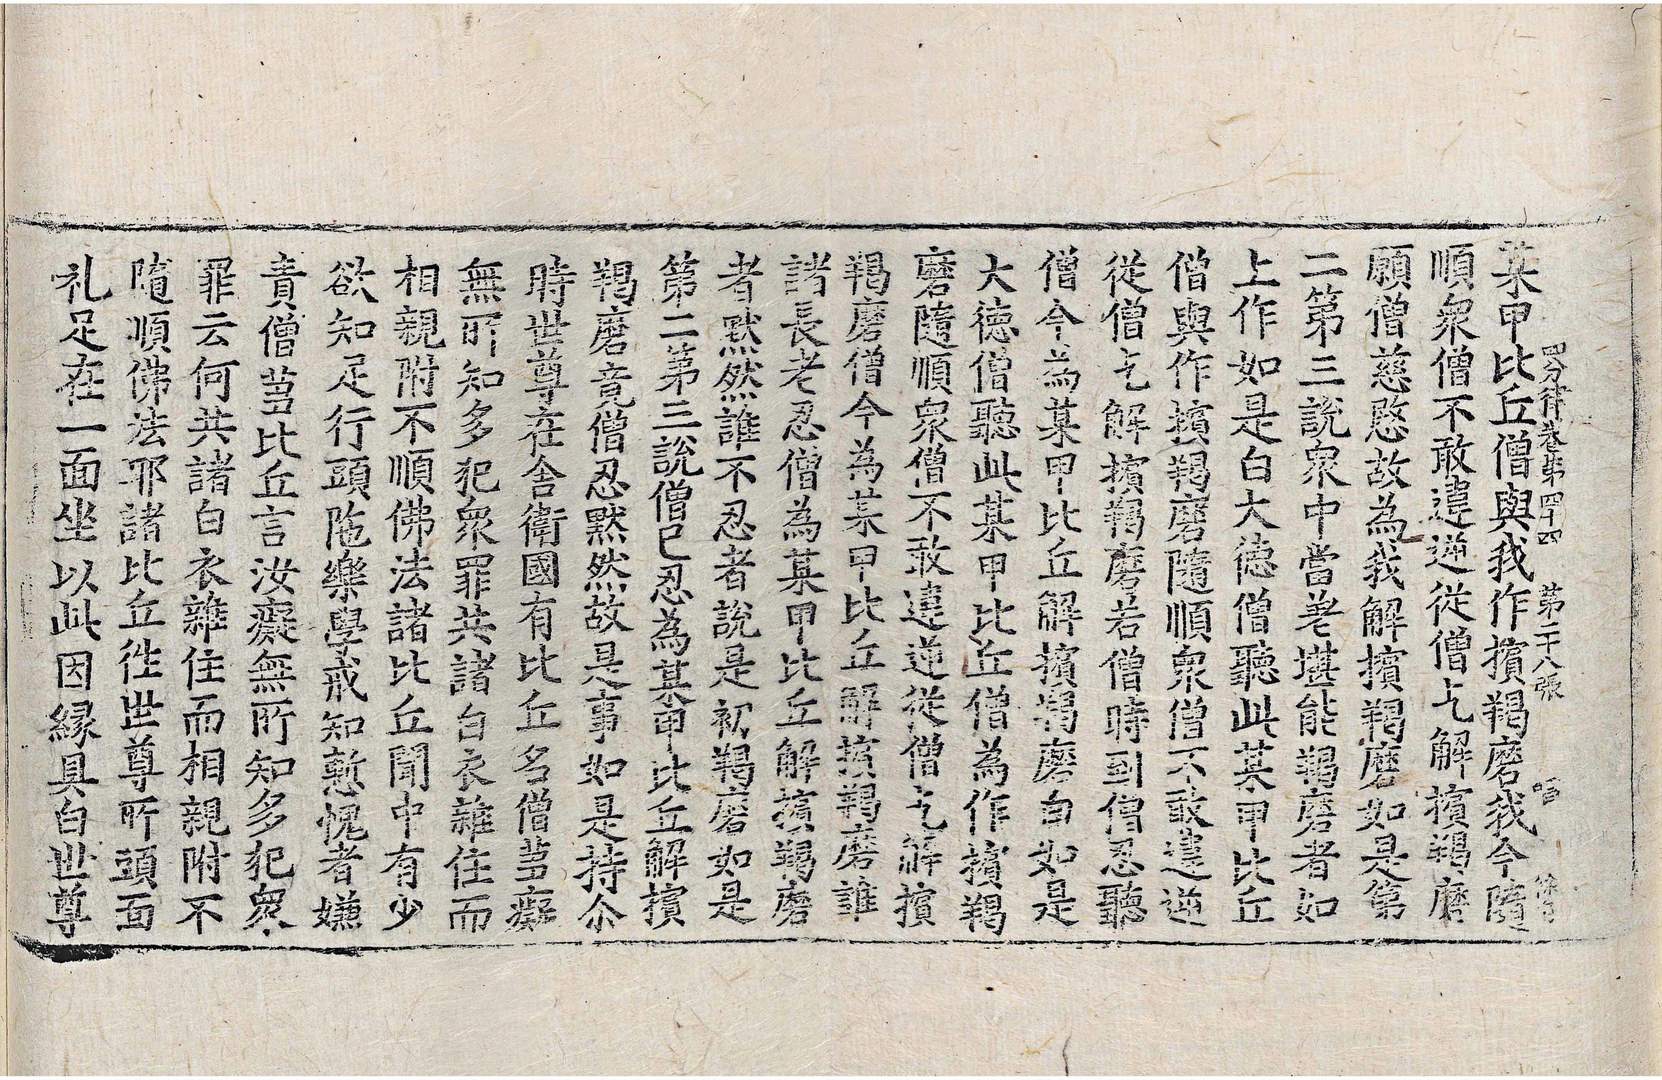 四分律卷第四十四　第二十八張
某甲比丘僧與我作擯羯磨我今隨
順衆僧不敢違逆從僧乞解擯羯磨
願僧慈愍故為我解擯羯磨如是第
二第三說衆中當差堪能羯磨者如
上作如是白大德僧聽此某甲比丘
僧與作擯羯磨隨順衆僧不敢違逆
從僧乞解擯羯磨若僧時到僧忍聽
僧今為某甲比丘解擯羯磨白如是
大德僧聽此某甲比丘僧為作擯羯
磨隨順衆僧不敢違逆從僧乞解擯
羯磨僧今為某甲比丘解擯羯磨誰
諸長老忍僧為某甲比丘解擯羯磨
者默然誰不忍者說是初羯磨如是
第二第三說僧已忍為某甲比丘解擯
羯磨竟僧忍默然故是事如是持尒
時世尊在舍衛國有比丘名僧芻癡
無所知多犯衆罪共諸白衣雜住而
相親附不順佛法諸比丘聞中有少
欲知足行頭陁樂學戒知慙愧者嫌
責僧芻比丘言汝癡無所知多犯衆
罪云何共諸白衣雜住而相親附不
隨順佛法耶諸比丘徃世尊所頭面
礼足在一面坐以此因縁具白世尊